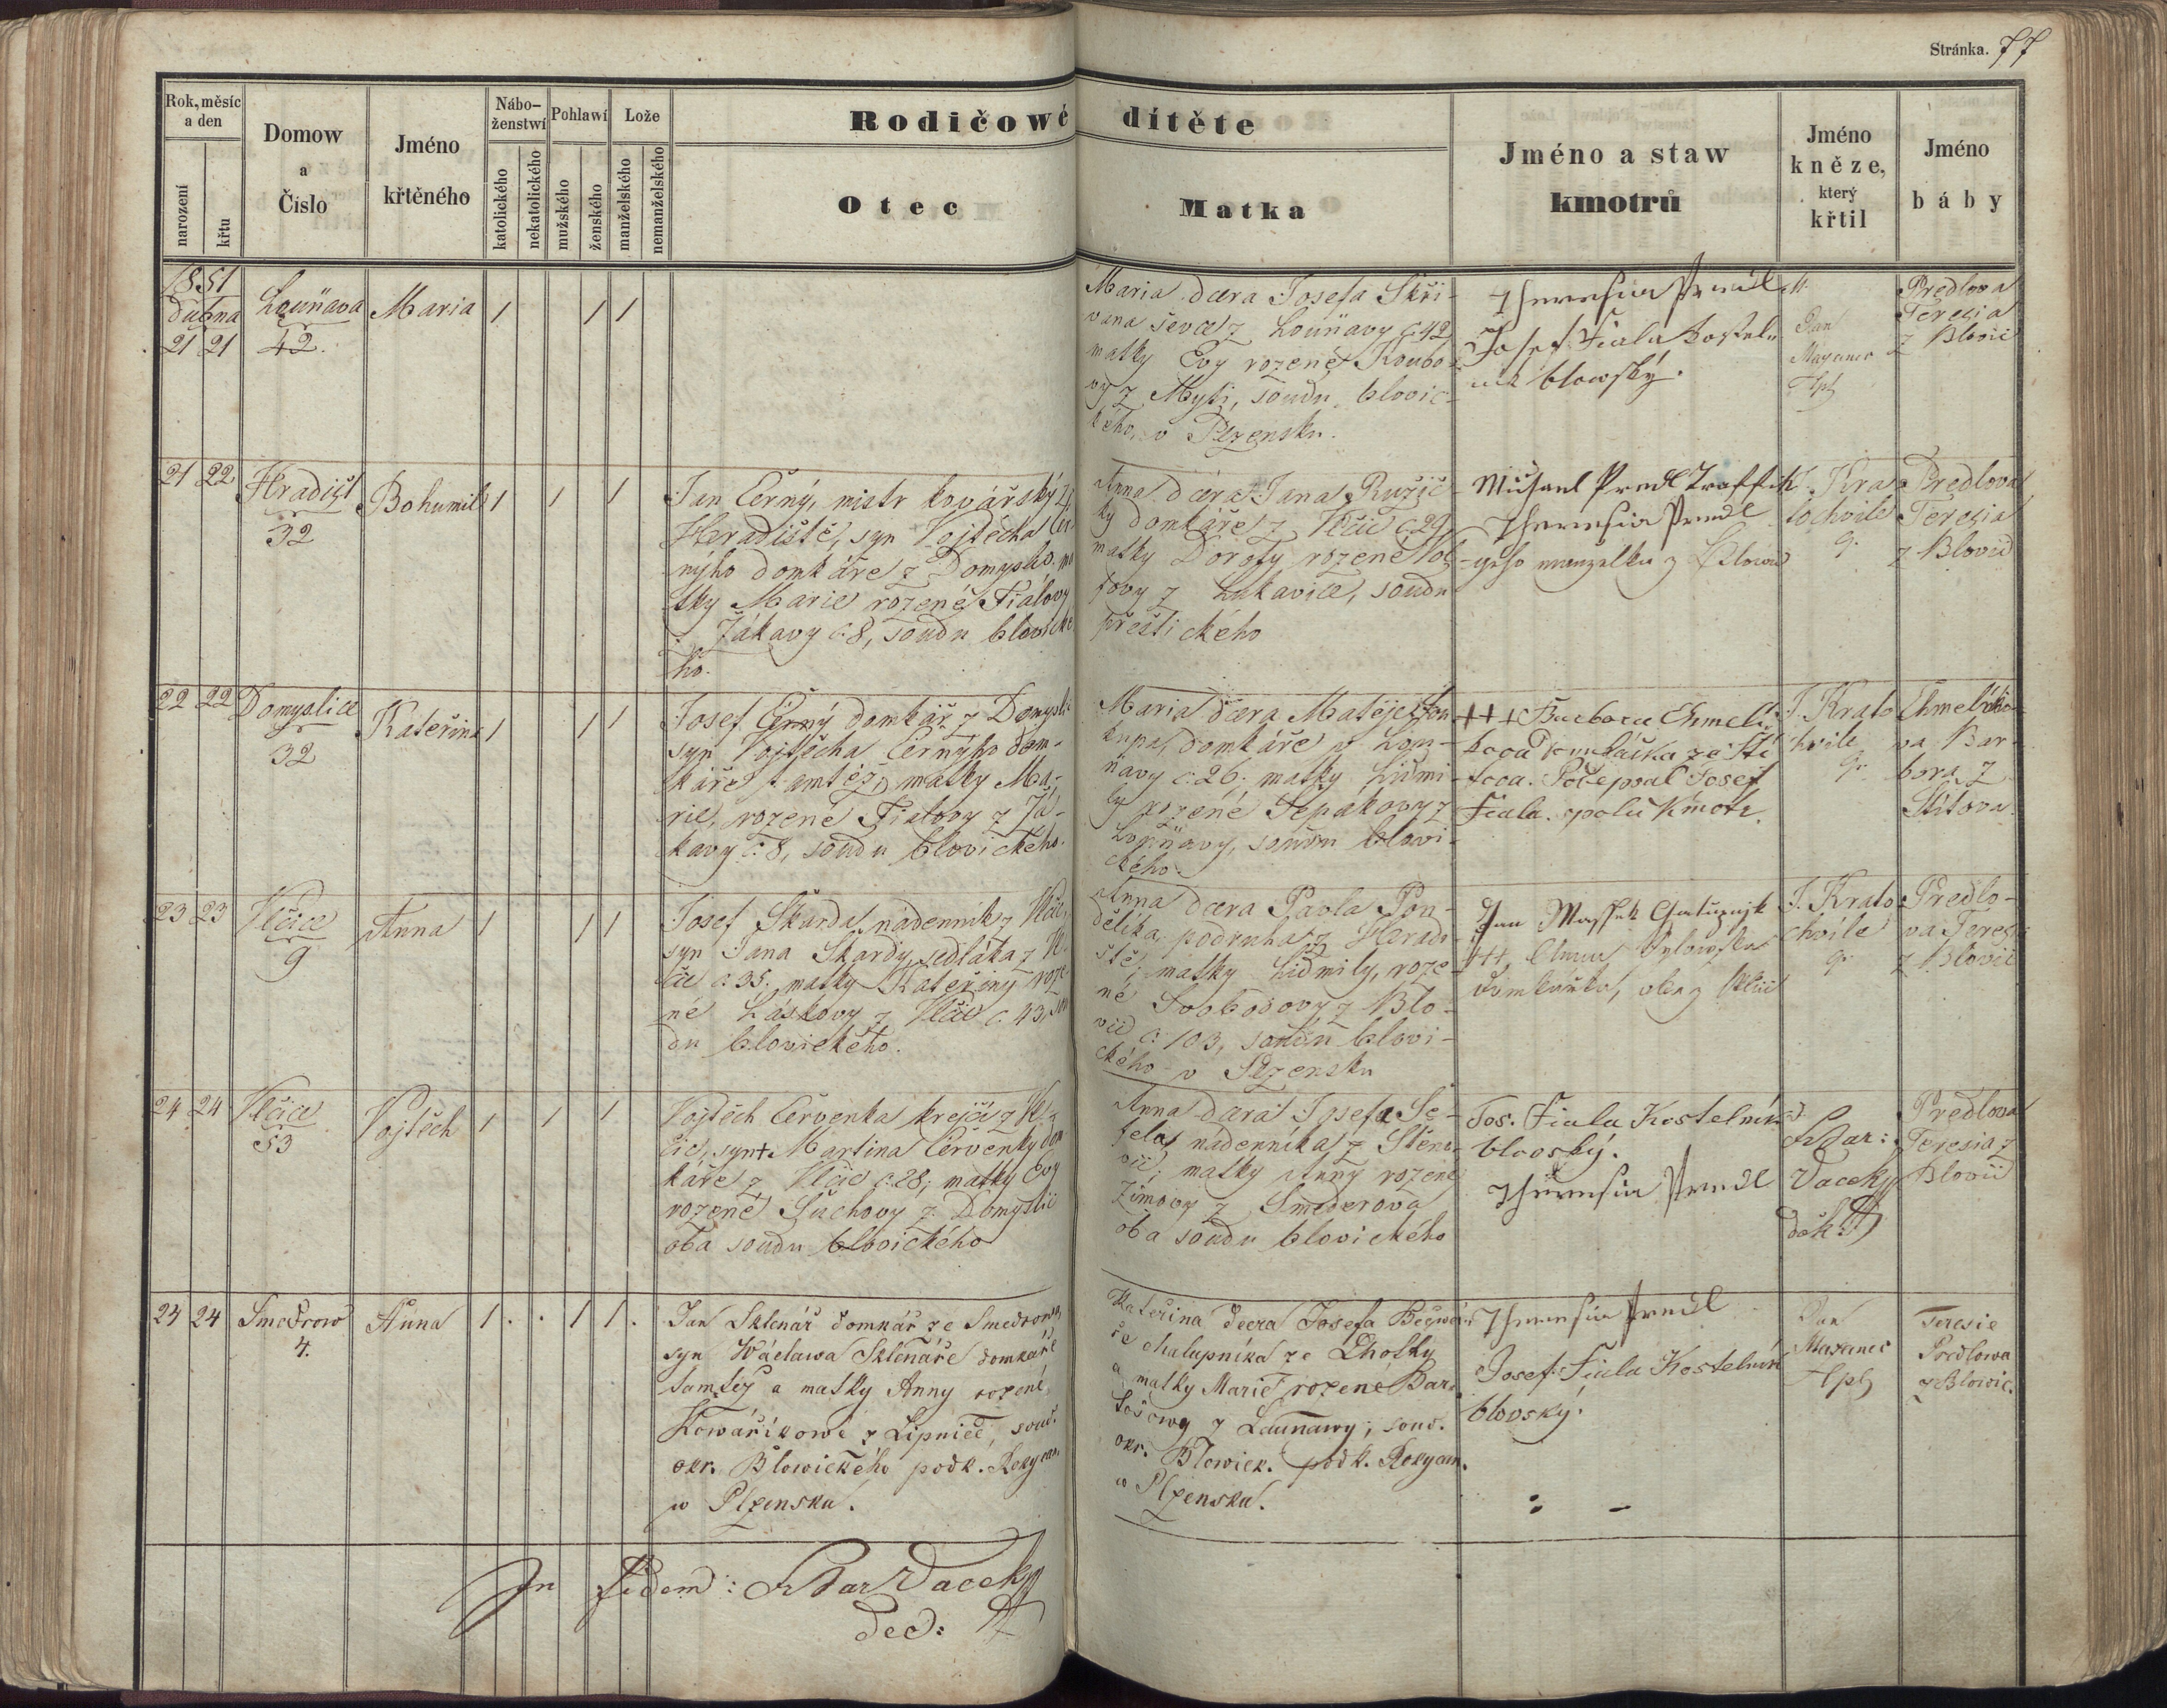 Stránka. 77
Rok, měsíc
a den
narození
křtu
Domow
a
Číslo
Jméno
křtěného
Nábo-
ženstwí
katolického
nekatolického
Pohlawí
mužského
ženského
Lože
manželského
nemanželského
Rodičowé dítěte
Otec
Matka
Jméno a staw
kmotrů
Jméno
kněze,
který
křtil
Jméno
báby
1851
dubna
21 21
Louňava
42.
Maria
1 1 1
Maria dcera Josefa Skři-
vana ševce z Louňavy č. 42
matky Evy rozené Koubo-
vy z Myti, soudu blovic-
kého, v Plzensku.
Theresia Predl
Josef Fiala kosteln
nik blowský.
Jan
Maxanec
Predlova
Teresia
z Blovic
21 22
Hradišt
32
Bohumil
1 1 1
Jan Černý, mistr kovářský z
Hradiště, syn Vojtěcha Čer-
nýho domkáře z Domyslic. ma
tky Marie rozené Fialovy
z Žákavy č. 8, soudu blovické
ho.
Anna dcera Jana Ružič-
ky domkáře z Vlčic č. 29
matky Doroty rozené
z Lukavice, soudu
přeštického
Michael Predl Traffik
Theresia Predl
geho manzelka z Blowic
J. Kra
tochvile
Predlova
Teresia
z Blovic
22 22
Domyslice
32
Kateřina
1 1 1
Josef Černý domkář z Domysli
syn Vojtěcha Černýho dom-
káře tamtéz, matky Ma-
rie, rozené Fialovy z Žá-
kavy č. 8, soudu blovického.
Maria dcera Matěje
domkáře z Lou-
ňavy č. 26. matky Lidmi-
ly rozené Sepákovy z
Louňavy, soudu blovi-
ckého.
+++ Barbora Chmeli
kova ze Ští
tova. Podepsal Josef
Fiala. spolu Kmotr.
J. Krato
chvile
Chmelíko
va Bar-
bora z
Štítova
23 23
Vlčice
9
Anna
1 1 1
Josef Škarda, nádenník z Vlčic,
syn Jana Škardy, sedláka z Vl-
čic č. 35. matky Kateřiny roze-
né Láskovy z Vlčic č. 43, sou
du blovického.
Anna dcera Pavla Pon-
dělíka, podruha z Hradi-
ště; matky Lidmily, roze-
né Svobodovy z Blo-
vic č. 103, soudu blovi-
ckého v Plzensku
Jan
domkařka, oba z Vlčic
J. Krato
chvile
Predlo-
va Teresi
z Blovic
24 24
Vlčice
53
Vojtěch
1 1 1
Vojtěch Červenka krejčí z Vl-
čic, syn + Martina Červenky dom
káře z Vlčic č. 28; matky Evy
rozené Suchovy z Domyslic
oba soudu blovického
Anna dcera Josefa Še-
fela, nádenníka z Stěno-
vic; matky Anny rozené
Zímovy z Smederova
oba soudu blovického
Jos. Fiala Kostelník
blovský.
Theresia Predl
Vacek
děk.
Predlova
Teresia z
Blovic
24 24
Smedrow
4.
Anna
1 . . 1 1 .
Jan Sklenář domkář ze Smedrowa,
syn Wáclawa Sklenáře domkáře
tamtéž a matky Anny rozené
Kowaříkowé z Lipnice, soud.
okr. Blowického podk. Rokycan.
w Plzensku.
Kateřina dcera Josefa
chalupníka ze Lhotky
a matky Marie rozené Bar-
tošowy z Launawy; soud.
okr. Blowick. podk. Rokycan.
w Plzensku.
Theresia Predl
Josef Fiala Kostelník
blovský.
Jan
Maxanec
Teresie
Predlowa
z Blowic.
In fidem: Vacek
dec: